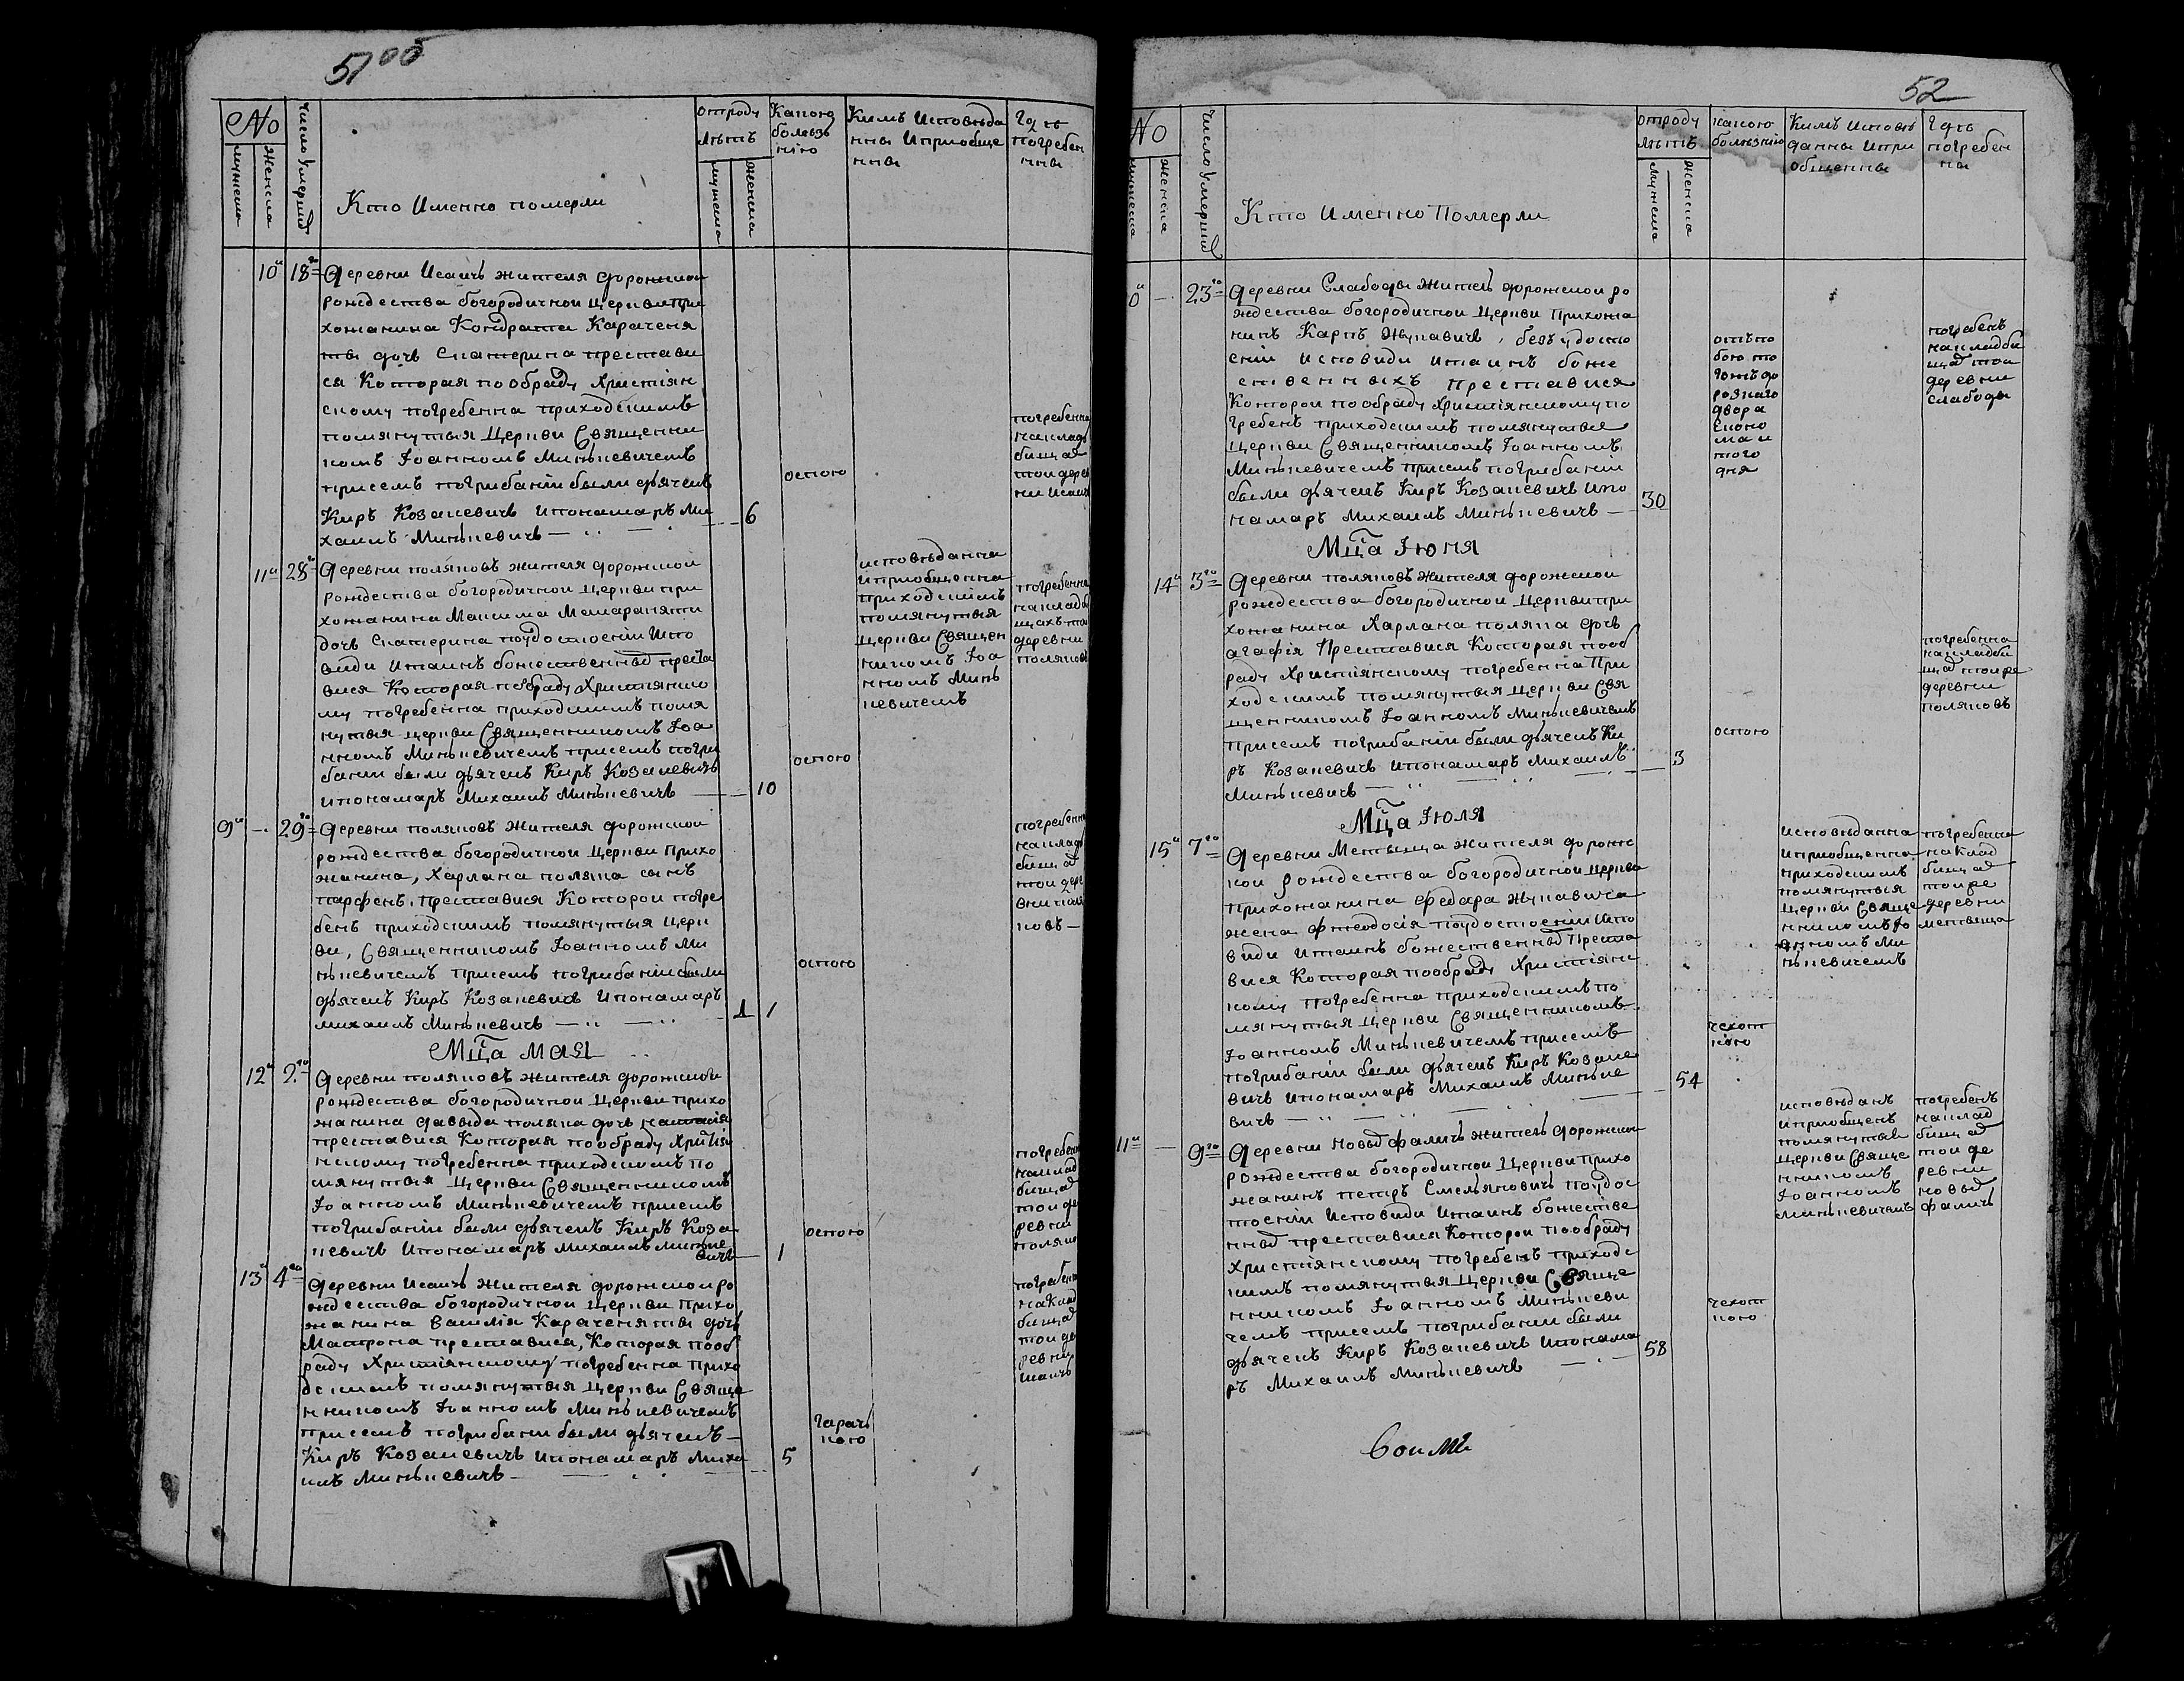 51об
No
мужеска
женска
число умерших
Кто Именно померли
отроду
лѣтъ
мужеска
женска
Какою
болѣзнію
Кимъ Исповѣда
нны Иприобще
нны
Гдѣ
погребен
нны
10а 18го Деревни Исаичъ жителя дорожкои
рождества богородичнои Церкви при
хожанина Кондрата Караченя
ты дочь Екатерина престави
ся Которая по обряду Христіян
скому погребенна приходскимъ
помянутыя Церкви Священни
комъ Іоанномъ Минькевичемъ
присемъ погрибаніи были дьячекъ
Киръ Козакевичъ Ипонамаръ Ми
хаилъ Минькевичъ
6
оспою
погребенна
накладъ
бищах
тои дерев
ни Исаичъ
11а 28го Деревни поляковъ жителя дорожкои
рождества богородичнои Церкви при
хожанина Максима
дочь Екатерина поудостоеніи Испо
види Итаинъ божественных преста
вися Которая пообряду Христіянско
му погребенна приходскимъ помя
нутыя церкви Священникомъ Іоа
нномъ Минькевичемъ присемъ погри
бании были дьячекъ Киръ Козакевичъ
ипонамаръ Михаилъ Минькевичъ
10
оспою
исповѣданна
иприобщенна
приходскимъ
помянутыя
Церкви Священ
никомъ Іоа
нномъ Минь
кевичемъ
погребенна
накладби
щахъ тои
деревни
поляковъ
9й 29го Деревни поляковъ жителя дорожкои
рождества богородичнои Церкви Прихо
жанина, Харлана поляка сынъ
парфенъ, преставися Которои погре
бенъ приходскимъ помянутыя Церк
ви, Священникомъ Іоанномъ Ми
нькевичемъ присемъ погрибаніи были
дьячекъ Киръ Козакевичъ Ипонамаръ
михаилъ Минькевичъ
1 1
оспою
накладъ
бищах
тои дере
вни поля
ковъ
Мца Мая
12а 2го Деревни поляковъ жителя дорожкои
рождества богородичнои Церкви прихо
жанина давыда поляка дочь настасія
преставися Которая пообряду Христія
нскому погребенна приходскимъ по
мянутыя Церкви Священникомъ
Іоанномъ Минькевичемъ присемъ
погрибаніи были дьячекъ Киръ Коза
кевичъ Ипонамаръ михаилъ минке
вичъ
1
оспою
наклад
бищах
тои де
ревни
поляко
13а 4го Деревни Исаичъ жителя дорожкои ро
ждества богородичнои Церкви прихо
жанина василія Караченяты дочь
Матрона преставися, Которая пооб
ряду Христіянскому погребенна прихо
дскимъ помянутыя Церкви Свяще
нникомъ Іоанномъ Минькевичемъ
присемъ погрибании были дьячекъ
Киръ Козакевичъ ипонамаръ Миха
илъ Минькевичъ
5
гарачь
кою
наклад
бищах
тои де
ревни
исаичъ
52
No
женска
число умерших
Кто Именно Померли
отроду
лѣтъ
мужеска
женска
какою
болѣзнію
Кимъ Исповѣ
данны Ипри
общенны
Гдѣ
погребен
ны
23го Деревни Слабоды Житель дорожкои ро
ждества богородичнои Церкви Прихожа
нинъ Карпъ Жукавичъ, безъ удосто
еніи исповиди итаинъ боже
ственныхъ преставися
Которои пообряду Христіянскому по
гребенъ приходскимъ помянутыя
Церкви Священникомъ Іоанномъ
Минькевичемъ присемъ погрибаніи
были дьячекъ Киръ Козакевичъ Ипо
намаръ Михаилъ Минькевичъ
30
двора
того
дня
погребенъ
накладби
щах тои
деревни
слабоды
Мца Іюня
14а 3го Деревни поляковъ жителя дорожкои
рождества богородичнои Церкви при
хожанина Харлана поляка дочь
агафія Преставися Которая пооб
ряду Христіянскому погребенна При
ходскимъ помянутыя Церкви Свя
щенникомъ Іоанномъ Минькевичемъ
присемъ погрибаніи были дьячекъ Ки
ръ Козакевичъ Ипонамаръ Михаилъ
Минькевичъ
3
оспою
погребенна
накладби
щах тоиже
деревни
поляковъ
Мца Іюля
15а 7го Деревни Метвища жителя дорож
кои рождества богородичнои Церкви
прихожанина федара Жукавича
жена феодосія поудостоеніи Испо
види Итаинъ божественных Преста
вися Которая пообряду Христіянс
кому погребенна приходскимъ по
мянутыя Церкви Священникомъ
Іоанномъ Минькевичемъ присемъ
погрибаніи были дьячекъ Киръ Козаке
вичъ ипонамаръ Михаилъ Миньке
вичъ
54
чехот
кою
исповѣданна
иприобщенна
приходскимъ
помянутыя
Церкви Свяще
нникомъ Іо
анномъ Ми
нькевичемъ
погребенна
наклад
бищах
тоиже
деревни
метвища
11й 9го Деревни Новых фаличъ житель дорожкои
рождества богородичнои Церкви Прихо
жанинъ петръ Емельяновичъ поудос
тоеніи Исповиди Итаинъ божестве
нных преставися Которои пообряду
Христіянскому погребенъ приходс
кимъ помянутыя Церкви Свяще
нникомъ Іоанномъ Минькеви
чемъ присемъ погрибании были
дьячекъ Киръ Козакевичъ Ипонама
ръ Михаилъ Минькевичъ
58
чехот
кою
исповѣданъ
иприобщенъ
помянутыя
Церкви Свяще
нникомъ
Іоанномъ
Минькевичемъ
погребенъ
наклад
бищах
тои де
ревни
новых
фаличъ